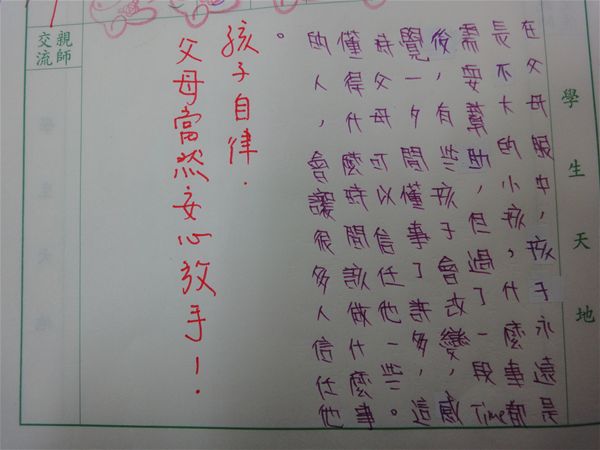 學生天地
在父母眼中，孩子永遠是
長不大的小孩，什麼事都
需要幫助，但過了一段Time
後，有些孩子會改變，感
覺一夕間懂事了許多，這
時父母可以信任他一些。
懂得什麼時間該做什麼事
的人，會讓很多人信任他
。
孩子自律．
父母當然安心放手！
親師
交流